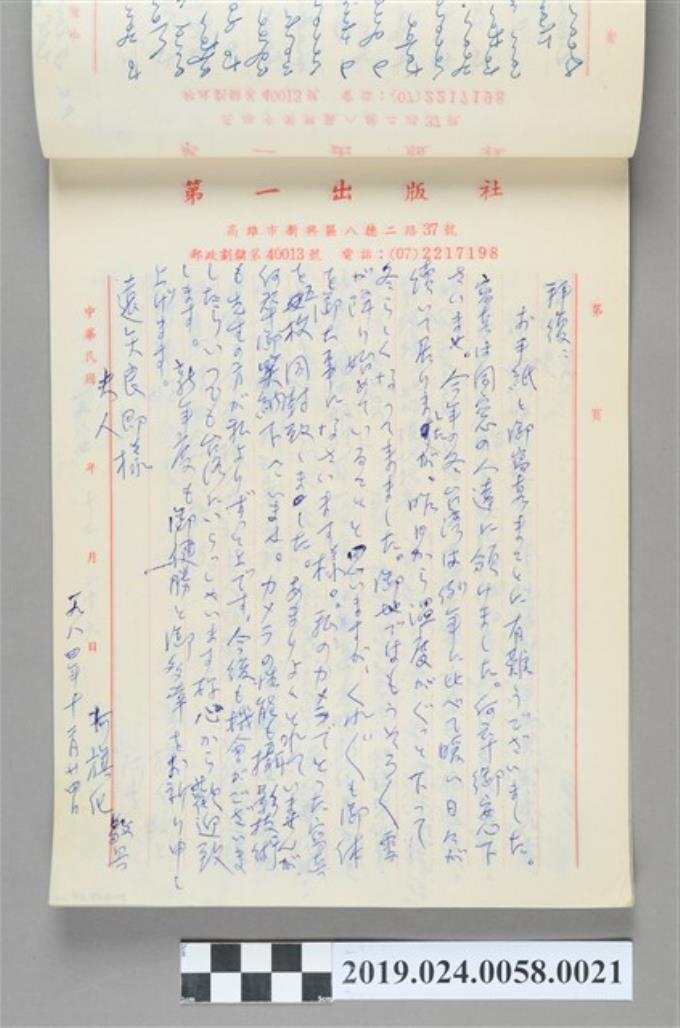 第一出版社
高雄市新興區八德二路37號
郵政劃儲第40013號 電話:(07)2217198
第 頁
拝復:
お手紙と御写真まことに有難うございました。
写真は同窓の人達に領けました。何卒御安心下
さいませ。今年の冬台湾は例年に比べて暖い日々が
続いて居りましたが、昨日から温度がぐっと下って
冬らしくなってきました。御地ではもうそろそろ雪
が降り始めていることと思いますが、くれぐれも御体
を御大事になさいます様。私のカメラでとった写真
を五枚同封致しました。あまりよくとれていませんが
何卒御笑納下さいませ。カメラの性能も撮影技術
も先生の方が私よりずっと上です。今後も機会がございま
したらいつでも台湾にいらっしゃいます様心から歓迎致
します。新年度も御健勝と御多幸をお祈り申し
上げます。
遠矢良郎様
夫人
柯旗化 敬具
一九八四年十二月廿四日
中華民國 年 月 日
2019.024.0058.0021